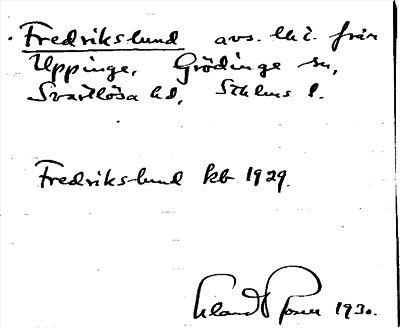 Fredrikslund avs. lht. från
Uppinge, Grödinge sn,
Svartlösa hd, Sthlms l.
Fredrikslund kb 1929.
1930.